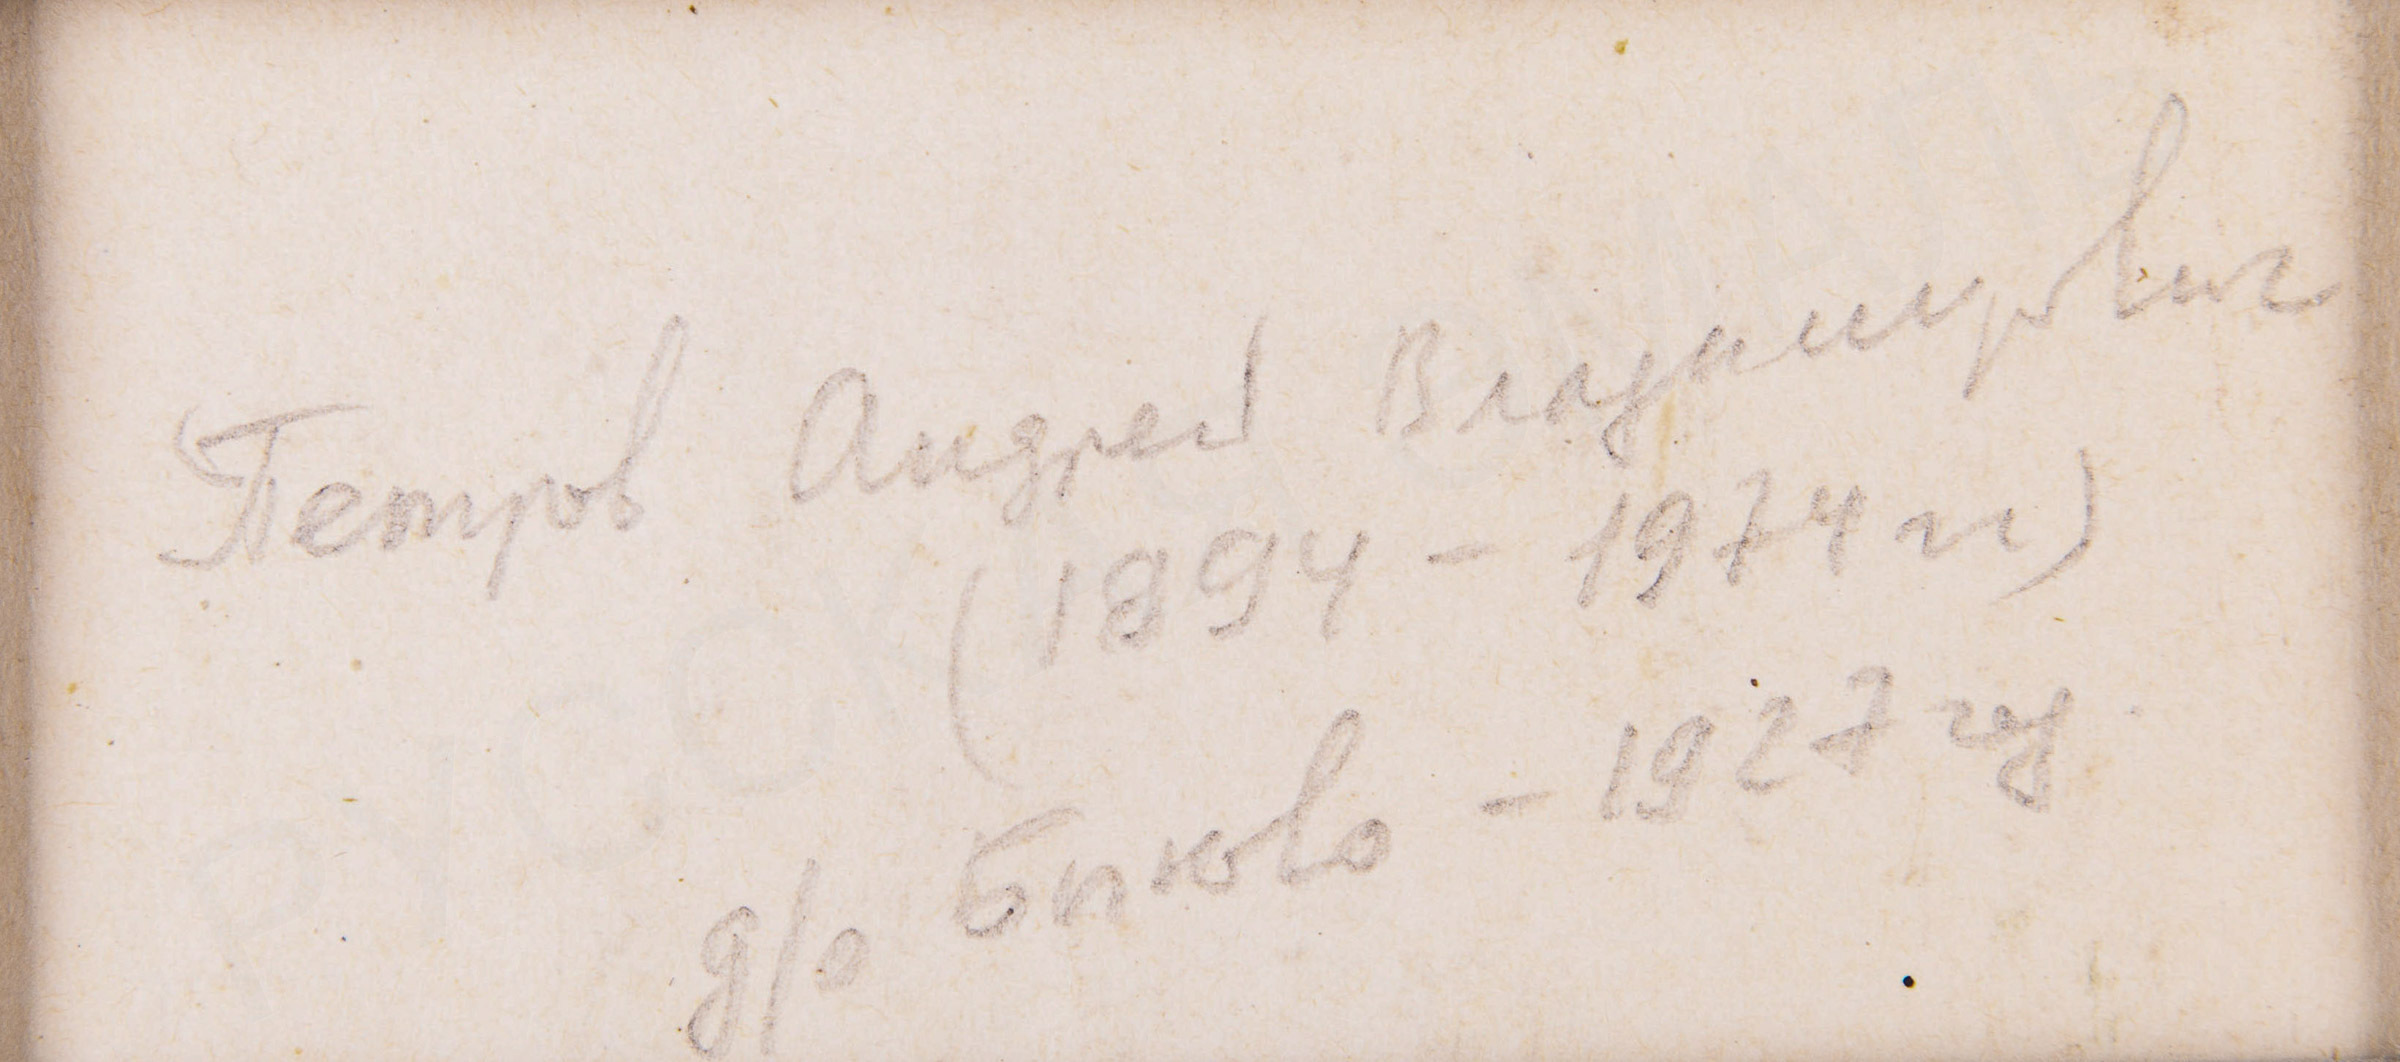 Петров Андрей Владимирович
(1894 - 1974 гг)
д/о - 1927 год